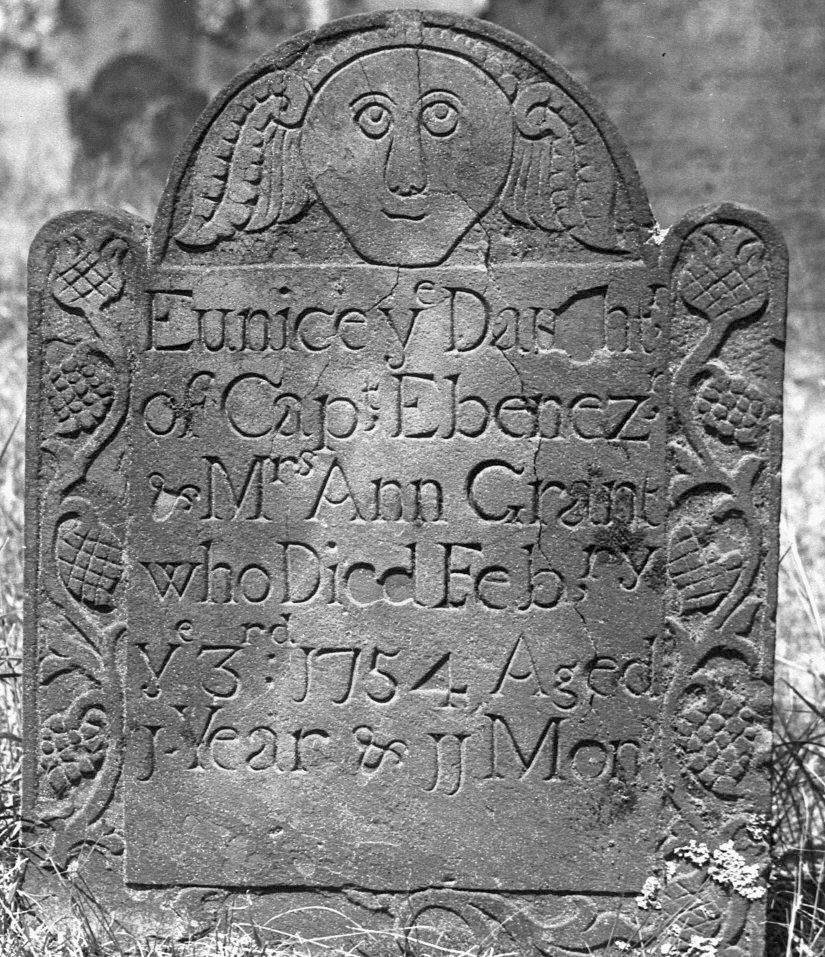 Eunice yᵉ Daughᵗʳ
of Capᵗ: Ebenezʳ
& Mʳˢ Ann Grant
who Died Febʳʸ
yᵉ 3:ʳᵈ 1754 Aged
1 Year & 11 Mon